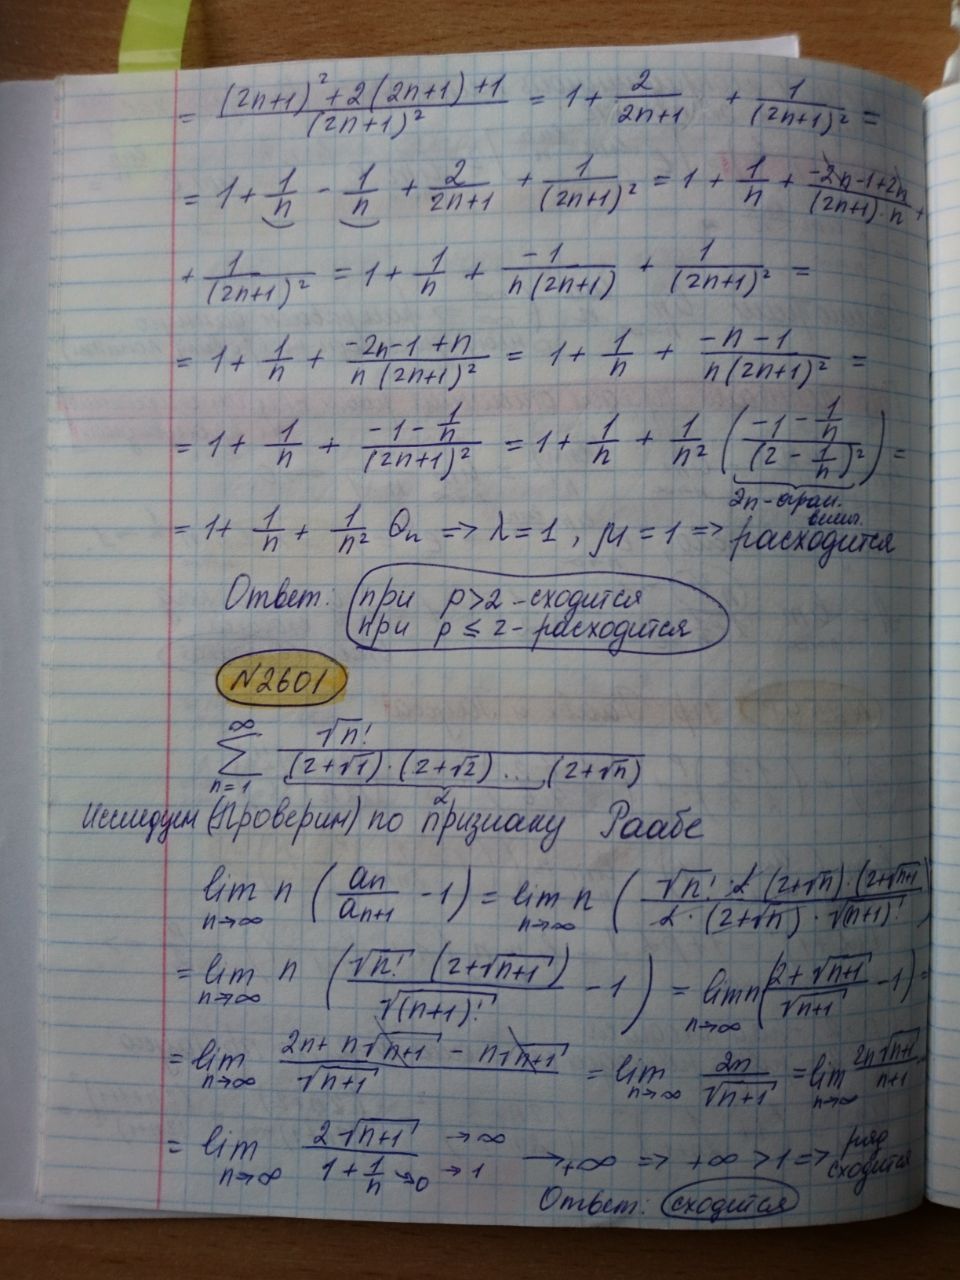 = ((2n+1)² + 2(2n+1) + 1)/(2n+1)² = 1 + 2/(2n+1) + 1/(2n+1)² =
= 1 + 1/n - 1/n + 2/(2n+1) + 1/(2n+1)² = 1 + 1/n + (-2n-1+2n)/((2n+1)·n) +
+ 1/(2n+1)² = 1 + 1/n + (-1)/(n(2n+1)) + 1/(2n+1)² =
= 1 + 1/n + (-2n-1+n)/(n(2n+1)²) = 1 + 1/n + (-n-1)/(n(2n+1)²) =
= 1 + 1/n + (-1-1/n)/(2n+1)² = 1 + 1/n + 1/n² ((-1-1/n)/(2-1/n)²) =
= 1 + 1/n + 1/n² Θn => λ=1, μ=1 => расходится
Ответ: при p>2 - сходится
при p ≤ 2 - расходится
N2601
∞ ∑ n=1 √n!/((2+√1)·(2+√2)·...·(2+√n))
Исследуем (Проверим) по признаку Раабе
lim n→∞ n (an/an+1 - 1) = lim n→∞ n (√n!·α·(2+√n)·(2+√n+1)/(α·(2+√n)·√(n+1)!)
= lim n→∞ n (√n! (2+√n+1)/√(n+1)! - 1) = lim n→∞ n((2+√n+1)/√n+1 - 1) =
= lim n→∞ (2n + n√n+1 - n√n+1)/√n+1 = lim n→∞ 2n/√n+1 = lim n→∞ 2n√n+1/n+1
= lim n→∞ 2√n+1 →∞/(1 + 1/n →0) →1 → +∞ => +∞ > 1 => ряд сходится
Ответ: сходится